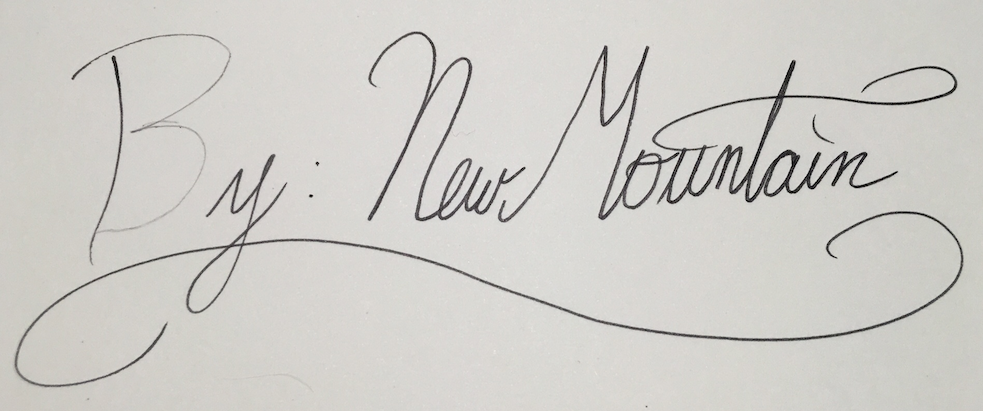 By: New Mountain